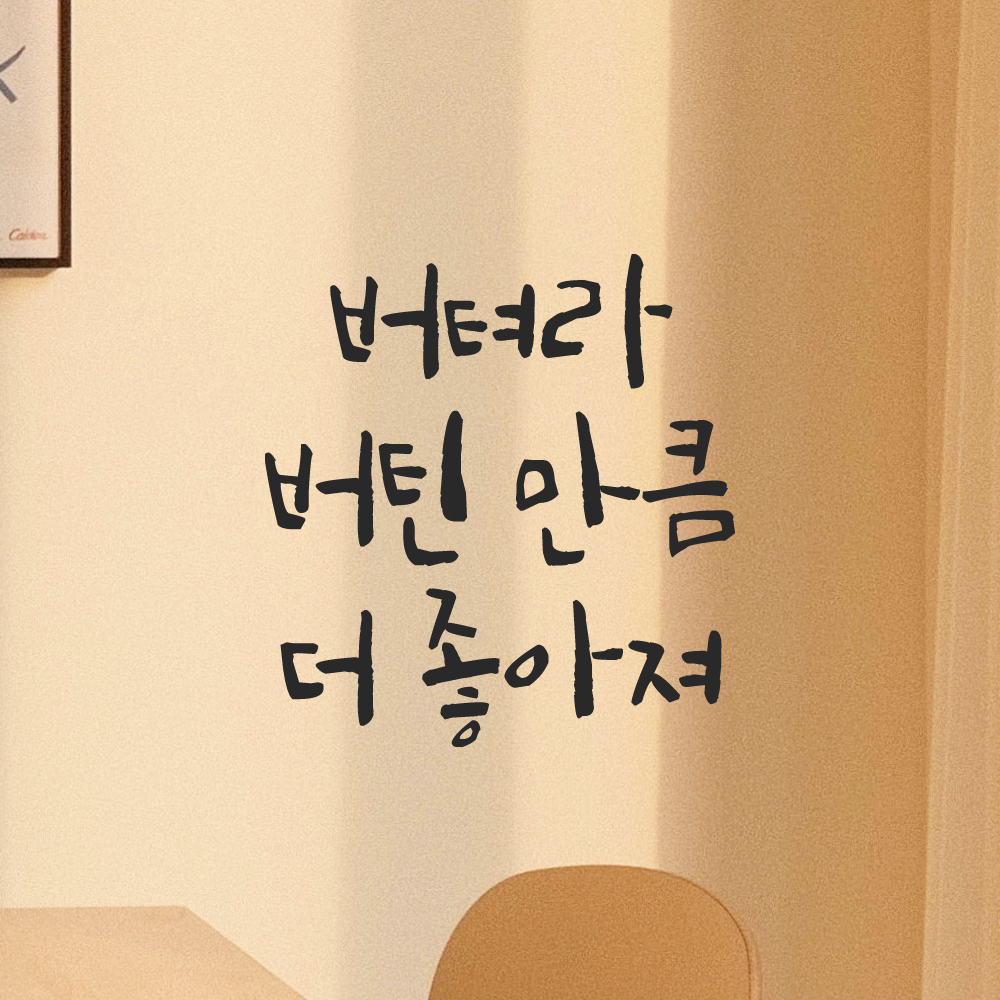 Calder
버텨라
버틴 만큼
더 좋아져